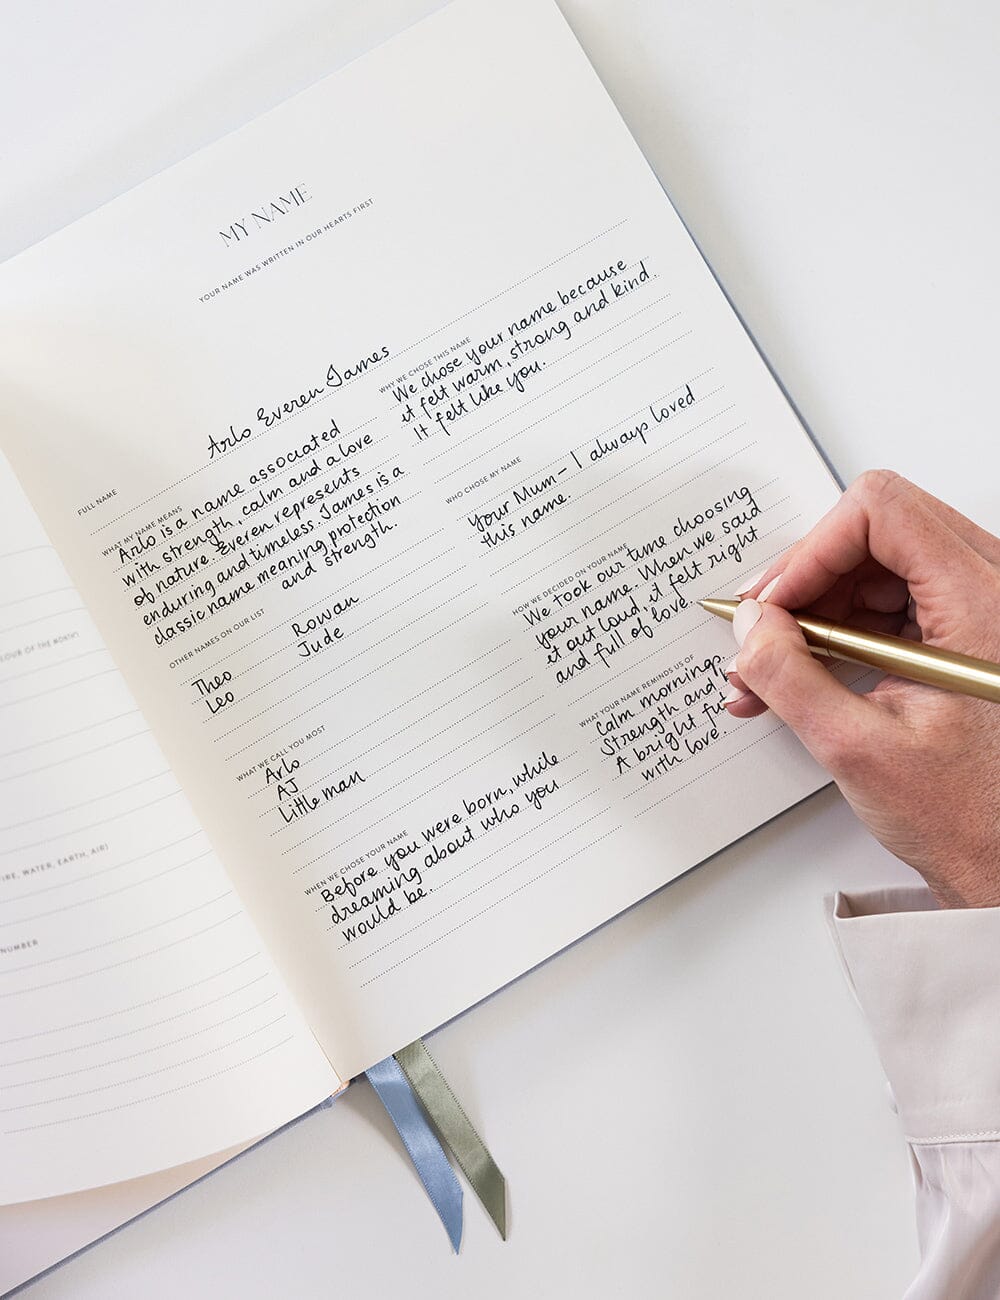 MY NAME
YOUR NAME WAS WRITTEN IN OUR HEARTS FIRST
FULL NAME
Arlo Everen James
WHAT MY NAME MEANS
Arlo is a name associated
with strength, calm and a love
of nature. Everen represents
enduring and timeless. James is a
classic name meaning protection
and strength.
OTHER NAMES ON OUR LIST
Theo
Rowan
Leo
Jude
WHAT WE CALL YOU MOST
Arlo
AJ
Little man
WHEN WE CHOSE YOUR NAME
Before you were born, while
dreaming about who you
would be.
WHY WE CHOSE THIS NAME
We chose your name because
it felt warm, strong and kind.
It felt like you.
WHO CHOSE MY NAME
Your Mum – I always loved
this name.
HOW WE DECIDED ON YOUR NAME
We took our time choosing
your name. When we said
it out loud, it felt right
and full of love.
WHAT YOUR NAME REMINDS US OF
Calm mornings.
Strength and
A bright
with love.
OUR OF THE MONTH)
FIRE, WATER, EARTH, AIR)
NUMBER